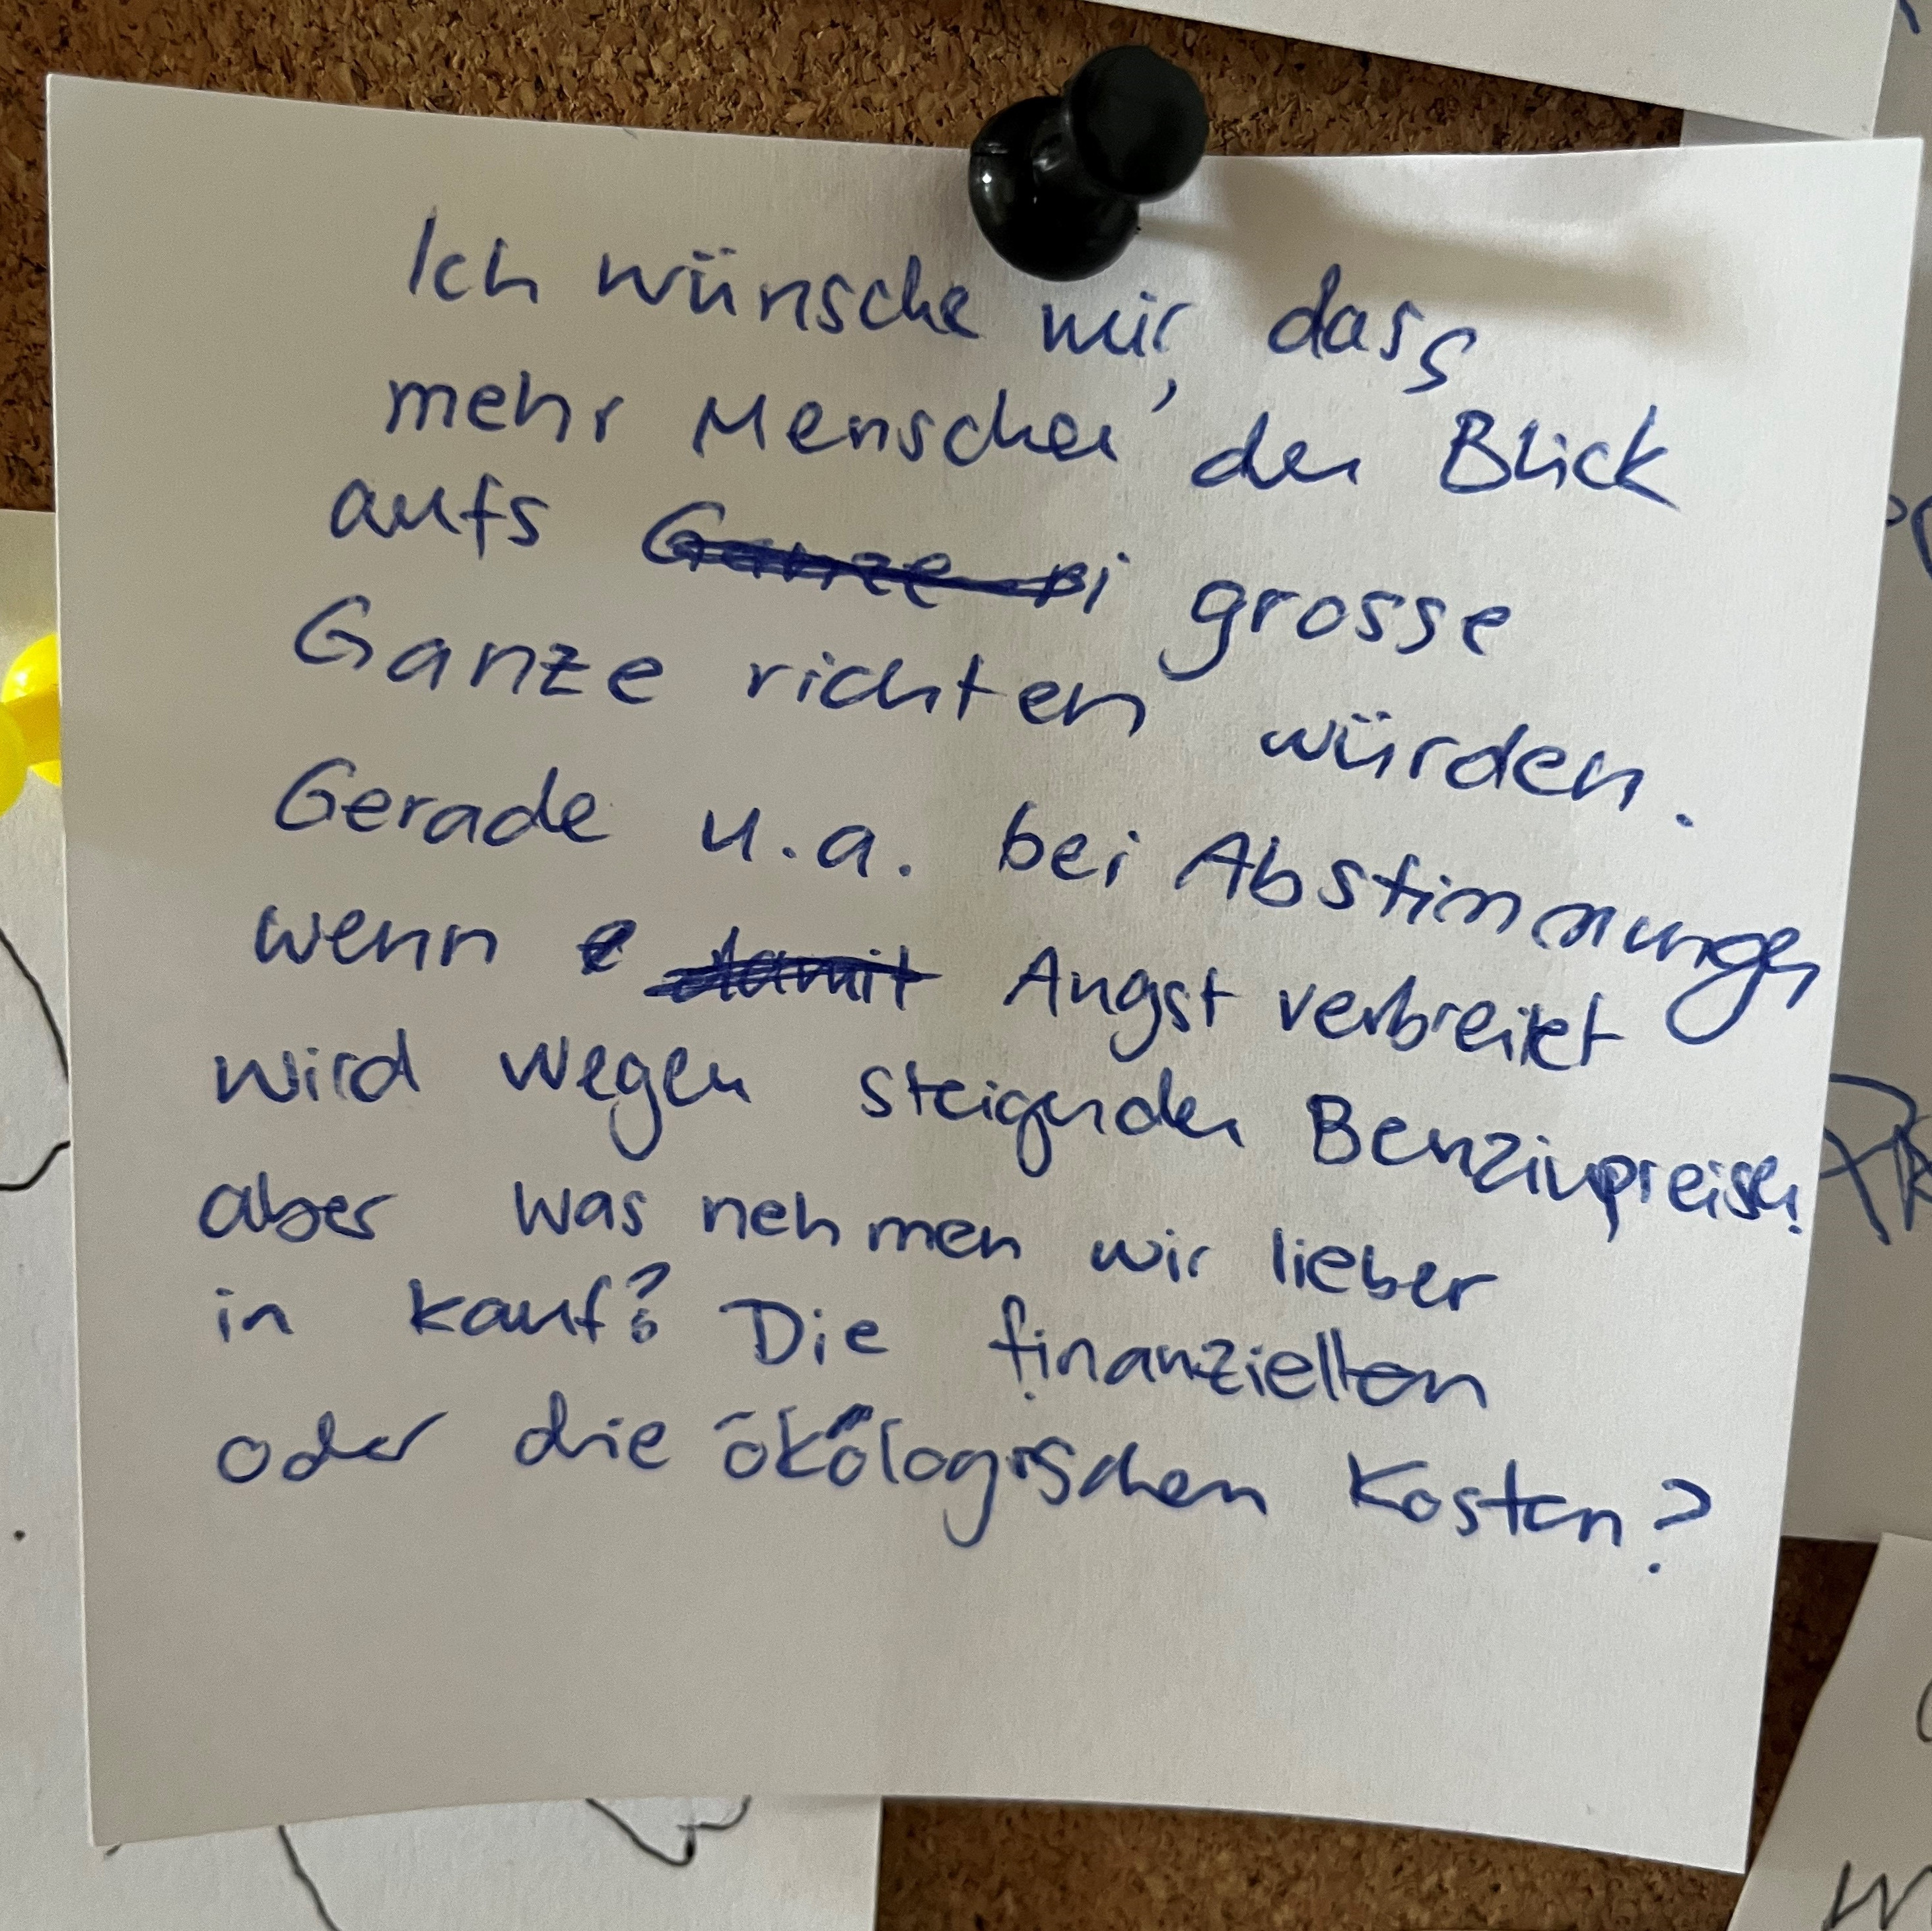 Ich wünsche mir, dass
mehr Menschen den Blick
aufs grosse
Ganze richten würden.
Gerade u.a. bei Abstimmungen
wenn Angst verbreitet
wird wegen steigenden Benzinpreisen
aber was nehmen wir lieber
in kauf? Die finanziellen
oder die ökologischen Kosten?